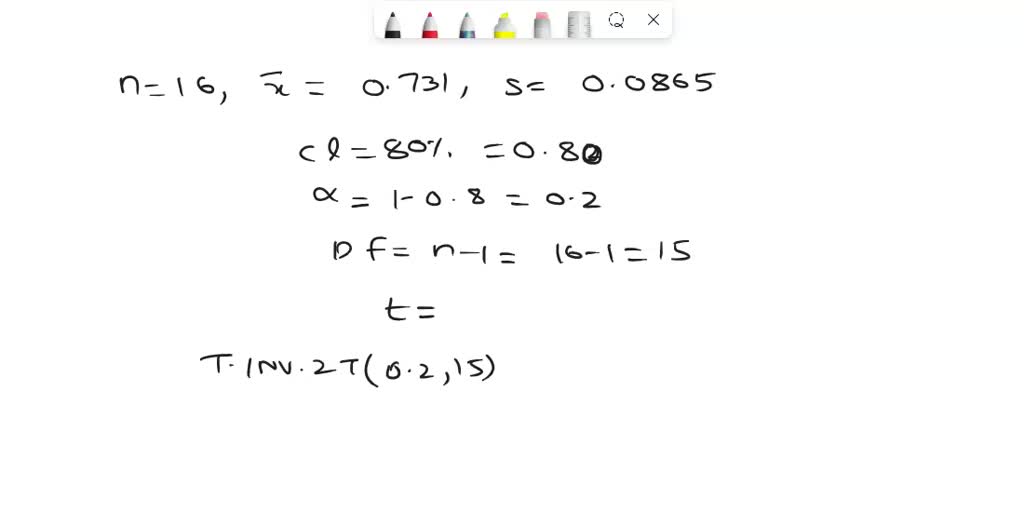 n=16, x̄ = 0.731, s= 0.0865
cl = 80% = 0.80
α = 1-0.8 = 0.2
Df = n-1 = 16-1 = 15
t =
T.INV.2T(0.2,15)